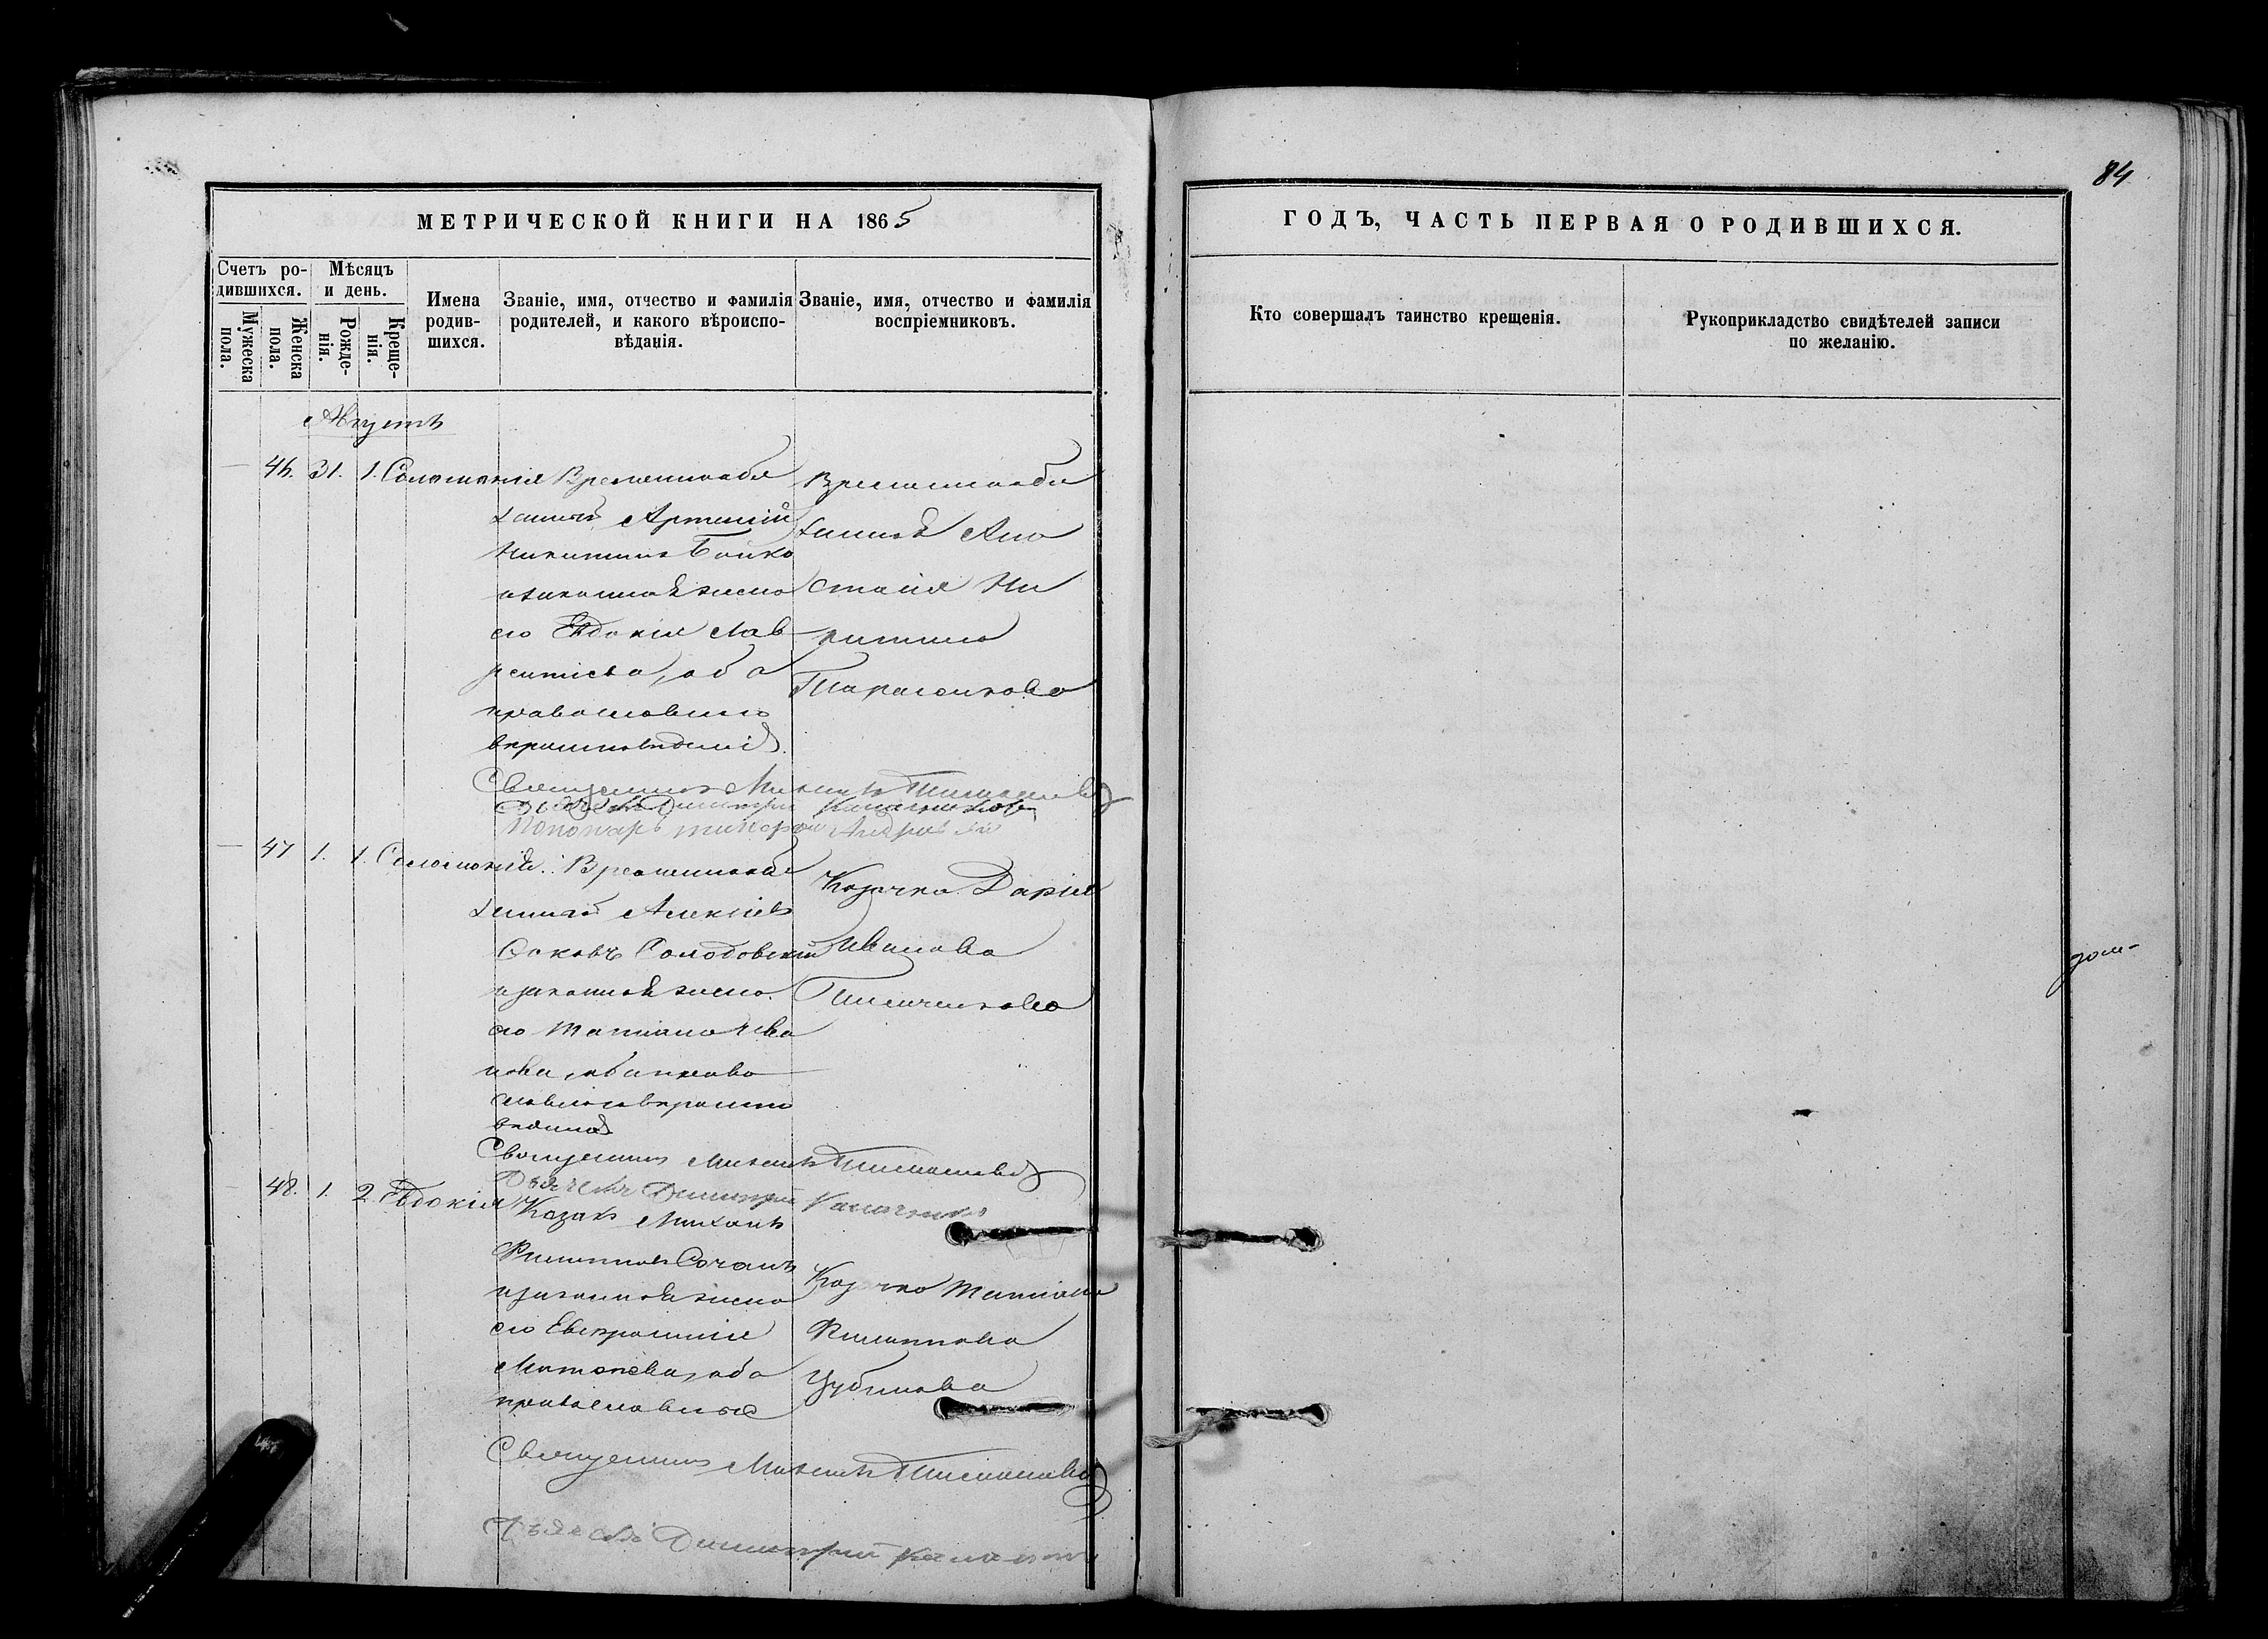 84
МЕТРИЧЕСКОЙ КНИГИ НА 1865
ГОДЪ, ЧАСТЬ ПЕРВАЯ О РОДИВШИХСЯ.
Счетъ ро-
дившихся.
Мужеска
пола.
Женска
пола.
Мѣсяцъ
и день.
Рожде-
нія.
Креще-
нія.
Имена
родив-
шихся.
Званіе, имя, отчество и фамилія
родителей, и какого вѣроиспо-
вѣданія.
Званіе, имя, отчество и фамилія
воспріемниковъ.
Кто совершалъ таинство крещенія.
Рукоприкладство свидѣтелей записи
по желанію.
Августъ
46. 31. 1. Соломонія
Временнообя
занный Артемій
Никитинъ Бойко
и законная жена
его Евдокія Лав
рентіева, оба
православнаго
вероисповеданія.
Временнообя
занная Ана
стасія Ни
китина
Тарасенкова
Священникъ Михаилъ
Дьячекъ Димитрій
Пономарь
47 1. 1. Соломонія.
Временнообя
занный Алексѣй
Солодовскій
и законная жена
его Татіана Ива
нова, оба право
славнаго вероиспо
веданія
Козачка Дарія
Иванова
Священникъ Михаилъ
Дьячекъ Димитрій
48. 1. 2. Евдокія
Козакъ Михаилъ
Филиповъ
и законная жена
его Евфросинія
оба
православные
Козачка Татіана
Филиппова
Священникъ Михаилъ
Дьячекъ Димитрій